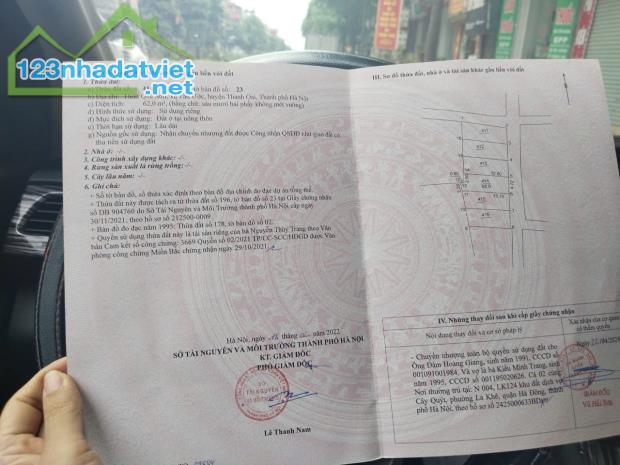 123nhadatviet
.com
gắn liền với đất
1. Thửa đất:
tờ bản đồ số: 23
huyện Thanh Oai, Thành phố Hà Nội
c) Diện tích: 62,0 m², (bằng chữ: sáu mươi hai phẩy không mét vuông)
d) Hình thức sử dụng: Sử dụng riêng
đ) Mục đích sử dụng: Đất ở tại nông thôn
e) Thời hạn sử dụng: Lâu dài
g) Nguồn gốc sử dụng: Nhận chuyển nhượng đất được Công nhận QSDĐ như giao đất có
thu tiền sử dụng đất
2. Nhà ở: -/-
3. Công trình xây dựng khác: -/-
4. Rừng sản xuất là rừng trồng: -/-
5. Cây lâu năm: -/-
6. Ghi chú:
+ Số tờ bản đồ, số thửa xác định theo bản đồ địa chính đo đạc dự án tổng thể.
+ Thửa đất này được tách ra từ thửa đất số 196, tờ bản đồ số 23 tại Giấy chứng nhận
số DB 904760 do Sở Tài Nguyên và Môi Trường thành phố Hà Nội cấp ngày
30/11/2021; theo hồ sơ số 212500-0009
+ Bản đồ đo đạc năm 1995: Thửa đất số 178, tờ bản đồ số 02.
+ Quyền sử dụng thửa đất này là tài sản riêng của bà Nguyễn Thùy Trang theo Văn
bản Cam kết số công chứng: 3669 Quyển số 02/2021 TP/CC-SCC/HĐGD được Văn
phòng công chứng Miền Bắc chứng nhận ngày 29/10/2021
Hà Nội, ngày tháng năm 2022
SỞ TÀI NGUYÊN VÀ MÔI TRƯỜNG THÀNH PHỐ HÀ NỘI
KT. GIÁM ĐỐC
PHÓ GIÁM ĐỐC
Lê Thanh Nam
III. Sơ đồ thửa đất, nhà ở và tài sản khác gắn liền với đất
IV. Những thay đổi sau khi cấp giấy chứng nhận
Nội dung thay đổi và cơ sở pháp lý
Xác nhận của cơ quan
có thẩm quyền
Chuyển nhượng toàn bộ quyền sử dụng đất cho
Ông Đàm Hoàng Giang, sinh năm 1991, CCCD
số 001091001984, Và vợ là bà Kiều Minh Trang, sinh
năm 1995, CCCD số 001195020626. Cả 02 cùng
Nơi thường trú tại: N 004, LK124 khu đất dịch vụ
Cây Quýt, phường La Khê, quận Hà Đông, thành
phố Hà Nội, theo hồ sơ số 2425000633BD